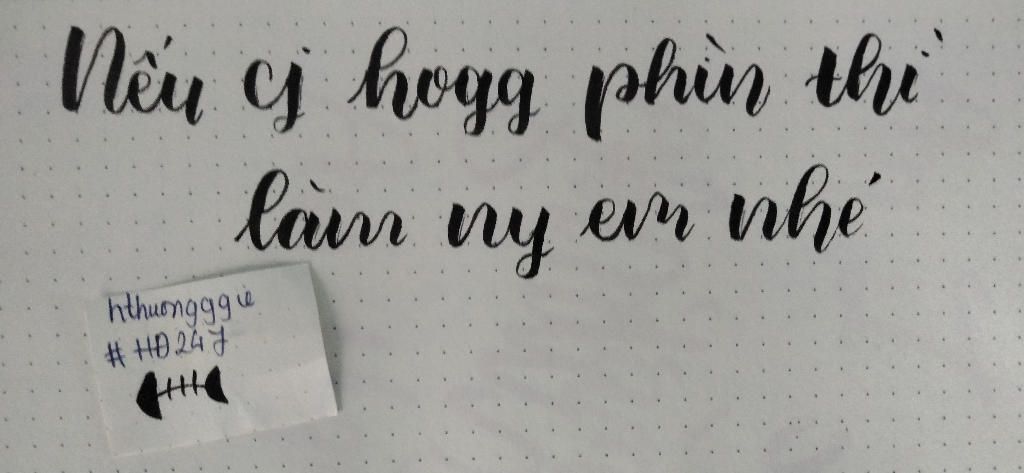 Nếu cj hogg phìn thì
làm ny em nhé
hthuongggie
#HĐ247